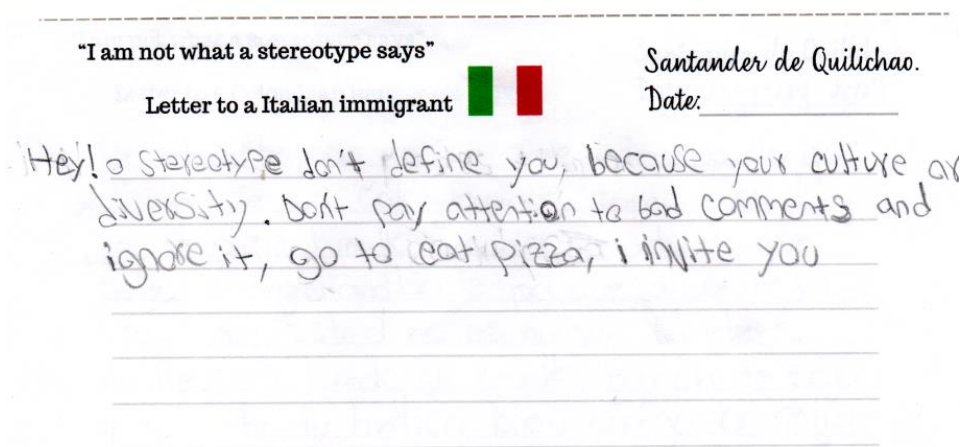 "I am not what a stereotype says"
Letter to a Italian immigrant
Santander de Quilichao.
Date:
Hey! a stereotype don't define you, because your culture ar
diversity. Don't pay attention to bad comments and
ignore it, go to eat pizza, i invite you